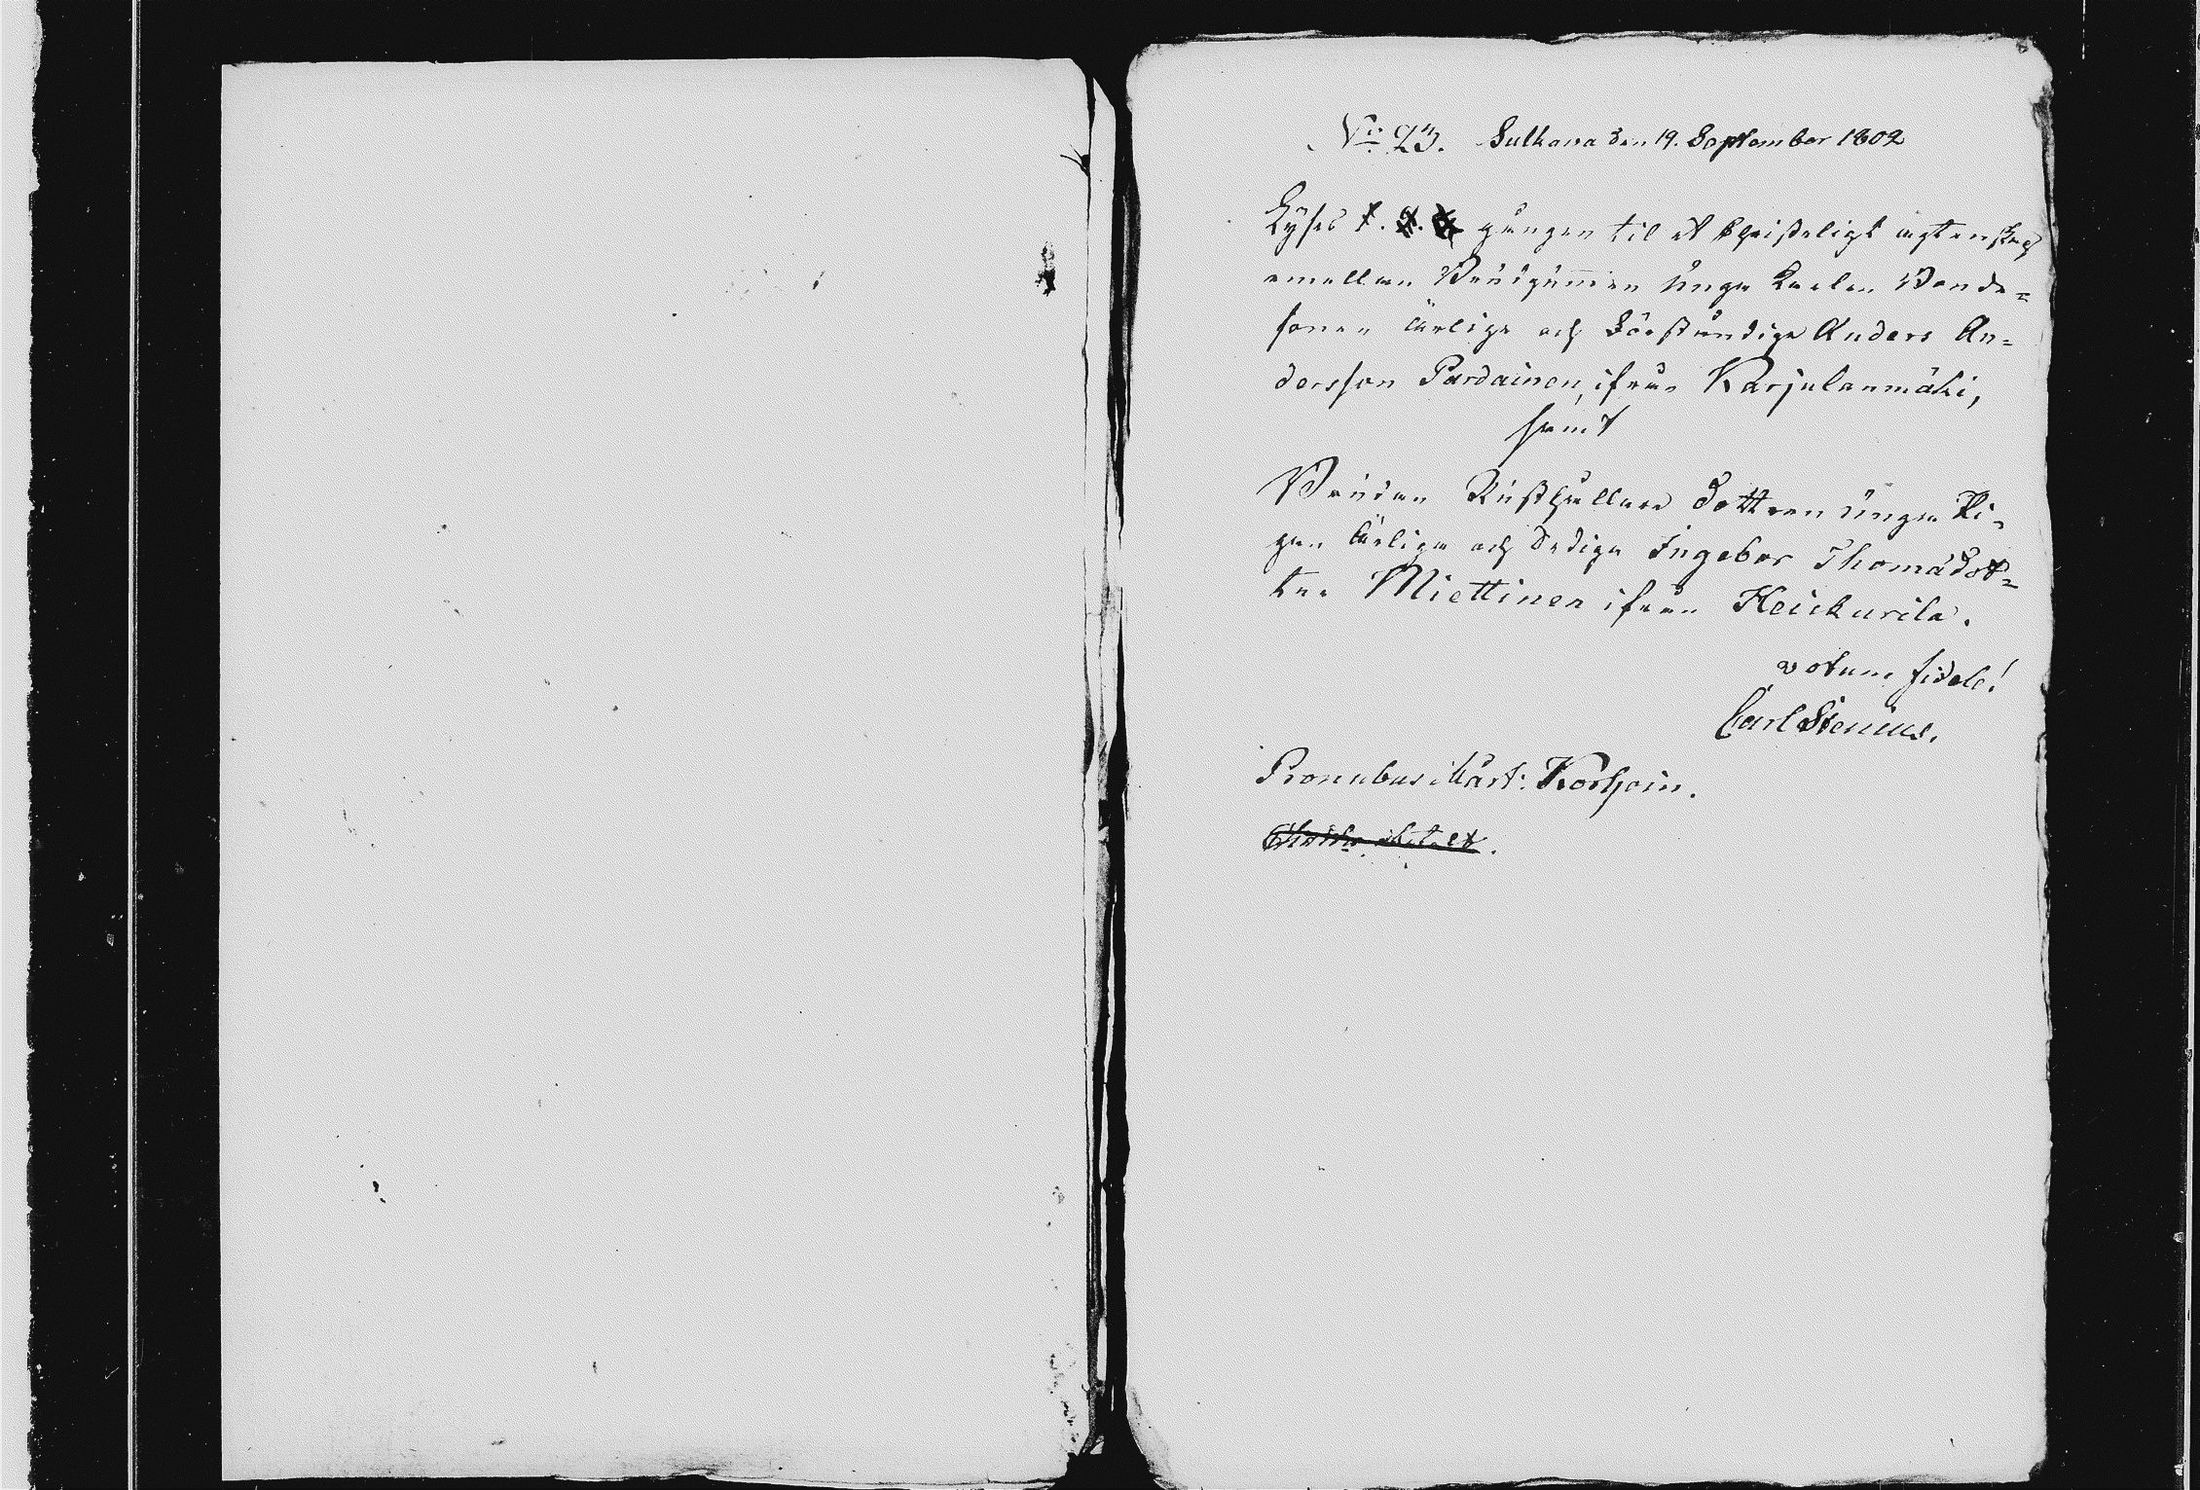 No 23. Sulkava den 19. September 1802
Lyses 1. 2. 3. gången til et Christeligt ägtenskap
emellan Brudgummen Unga Karlen Bonde=
sonen ärlige och Förståndige Anders An=
dersson Pardainen, ifrån Karjulanmäki,
samt
Bruden Rusthållare Dottren unga Pi=
gan ärliga och Sediga Ingebor Thomædot=
ter Miettinen ifrån Heickurila.
votum fidele!
Carl Stenius.
Pronubus Mårt: Korhoin.